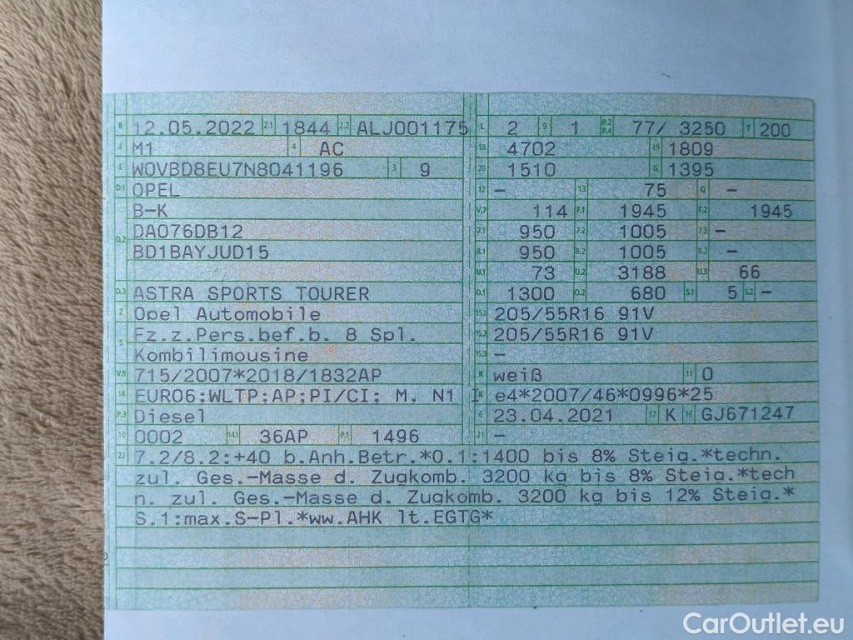 B 12.05.2022 2.1 1844 2.2 ALJ001175 L 2 9 1 P.2 P.4 77/ 3250 T 200
J M1 4 AC 18 4702 19 1809
E W0VBD8EU7N8041196 3 9 20 1510 G 1395
D.1 OPEL 12 – 13 75 Q –
B-K V.7 114 F.1 1945 F.2 1945
D.2 DA076DB12 7.1 950 7.2 1005 7.3 –
BD1BAYJUD15 8.1 950 8.2 1005 8.3 –
U.1 73 U.2 3188 U.3 66
D.3 ASTRA SPORTS TOURER O.1 1300 O.2 680 S.1 5 S.2 –
2 Opel Automobile 15.1 205/55R16 91V
5 Fz.z.Pers.bef.b. 8 Spl. 15.2 205/55R16 91V
Kombilimousine 15.3 –
V.9 715/2007*2018/1832AP R weiß 11 0
14 EURO6;WLTP;AP;PI/CI; M, N1 I K e4*2007/46*0996*25
P.3 Diesel 6 23.04.2021 17 K 16 GJ671247
10 0002 14.1 36AP P.1 1496 21 –
22 7.2/8.2:+40 b.Anh.Betr.*O.1:1400 bis 8% Steig.*techn.
zul. Ges.-Masse d. Zugkomb. 3200 kg bis 8% Steig.*tech
n. zul. Ges.-Masse d. Zugkomb. 3200 kg bis 12% Steig.*
S.1:max.S-Pl.*ww.AHK lt.EGTG*
CarOutlet.eu